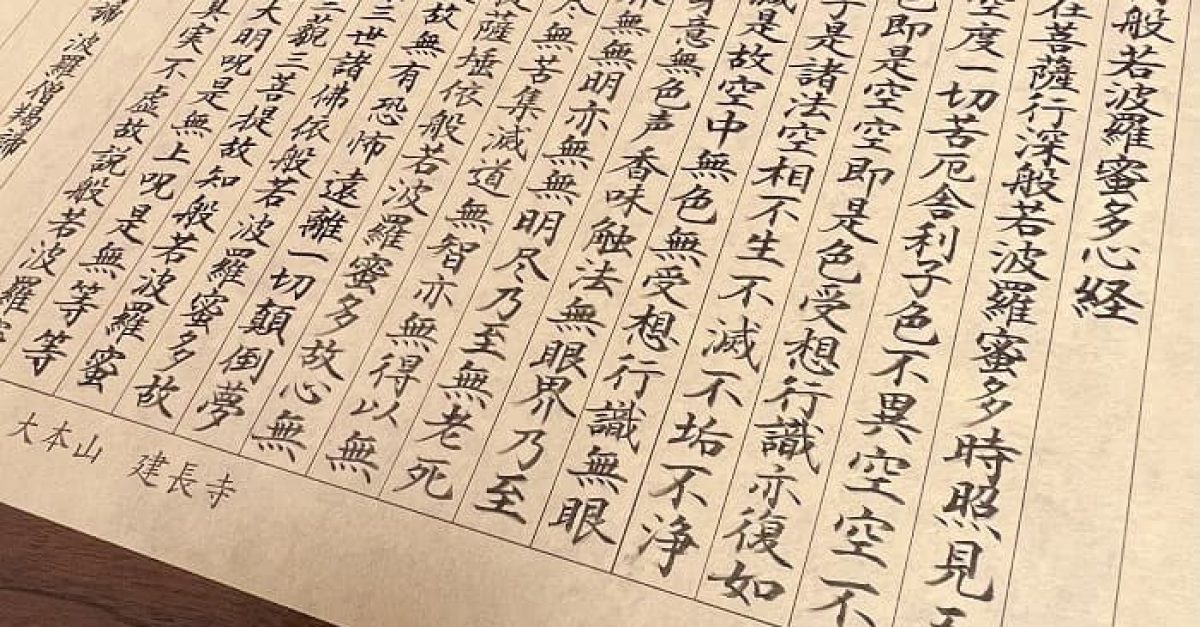 般若波羅蜜多心経
在菩薩行深般若波羅蜜多時照見
空度一切苦厄舎利子色不異空空不
色即是空空即是色受想行識亦復如
子是諸法空相不生不滅不垢不浄
減是故空中無色無受想行識無眼
意無色声香味触法無眼界乃至
無無明亦無無明尽乃至無老死
尽無苦集滅道無智亦無得以無
薩埵依般若波羅蜜多故心無
故無有恐怖遠離一切顛倒夢
三世諸佛依般若波羅蜜多故
三藐三菩提故知般若波羅蜜
大明呪是無上呪是無等等
真実不虚故説般若波羅蜜
諦波羅僧羯諦
大本山 建長寺